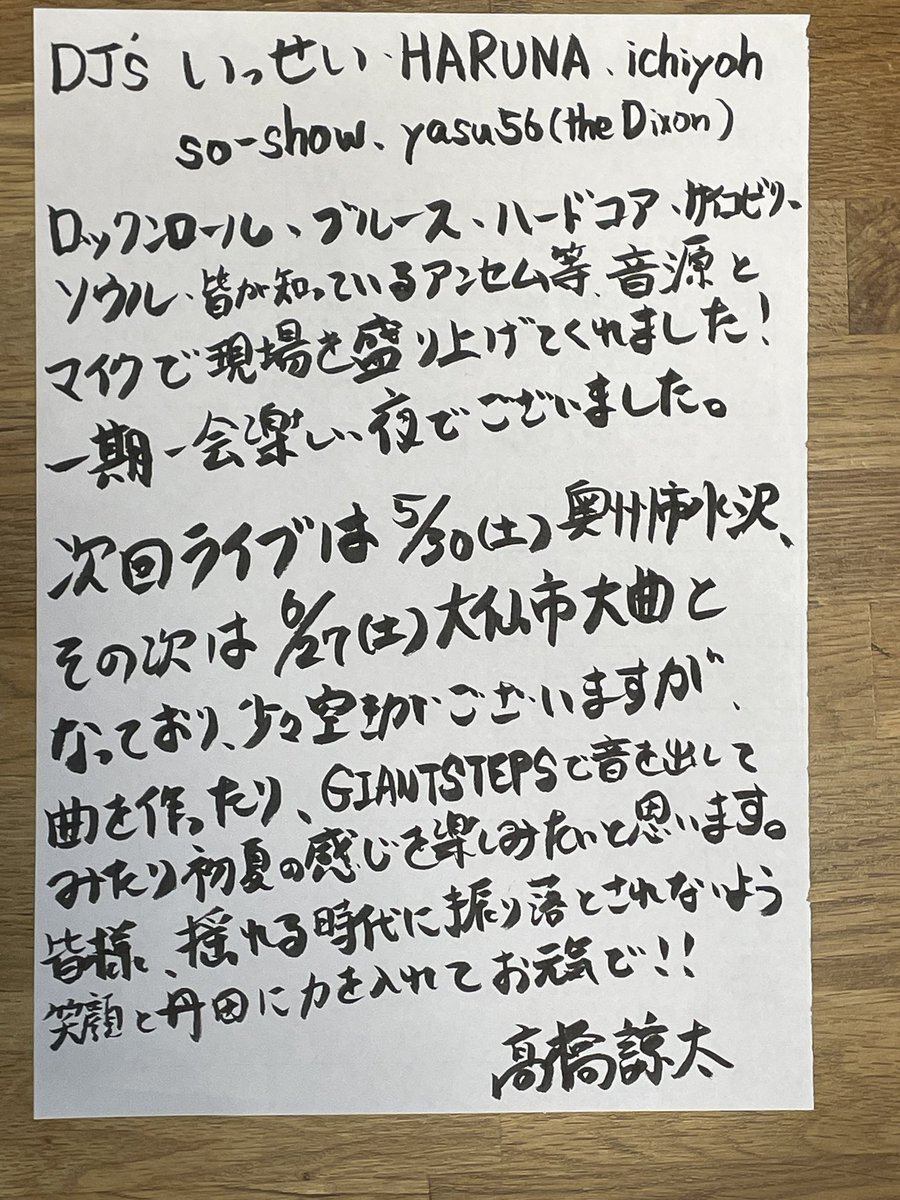 DJ's いっせい、HARUNA、ichiyoh
so-show、yasu56(the Dixon)
ロックンロール、ブルース、ハードコア、サイコビリー、
ソウル、皆が知っているアンセム等、音源と
マイクで現場を盛り上げてくれました!
一期一会楽しい夜でございました。
次回ライブは5/30(土)奥州市水沢、
その次は6/27(土)大仙市大曲と
なっており、少々空きがございますが、
曲を作ったり、GIANTSTEPSで音を出して
みたり初夏の感じを楽しみたいと思います。
皆様、揺れる時代に振り落とされないよう
笑顔と丹田に力を入れてお元気で!!
髙橋諒太